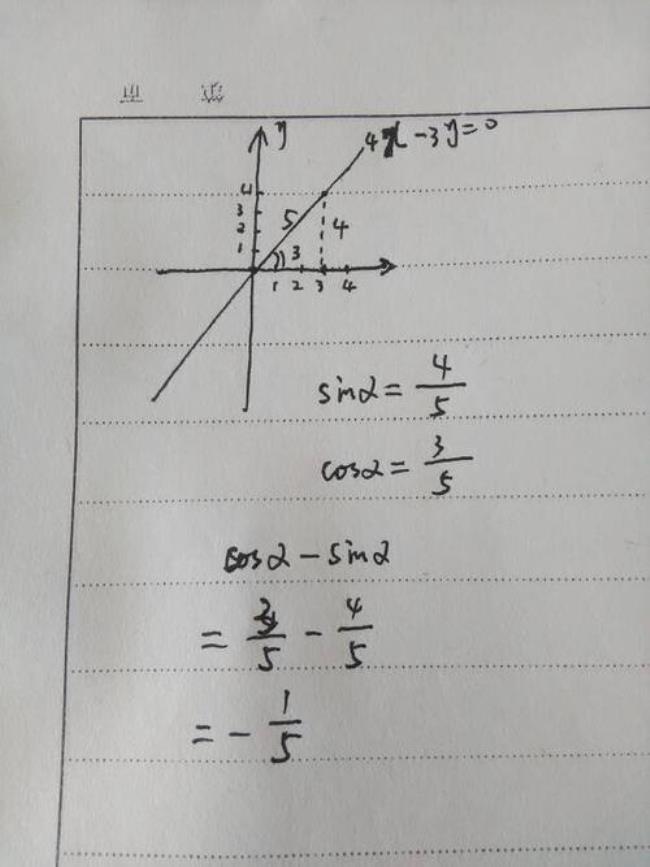 y
4x-3y=0
4
3
2
1
5
4
3
1 2 3 4
sinα=4/5
cosα=3/5
cosα-sinα
=3/5-4/5
=-1/5